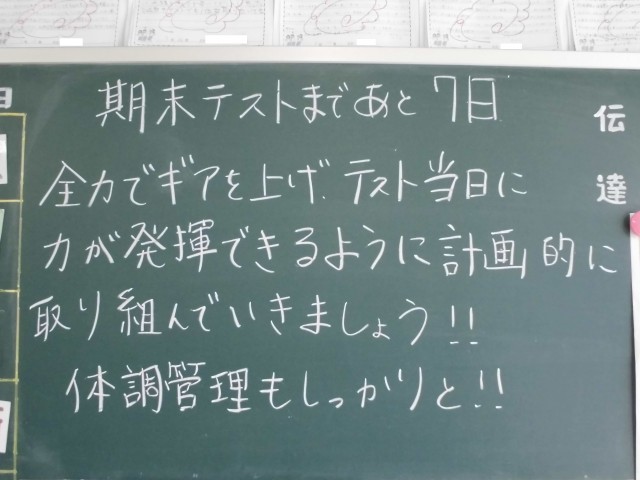 期末テストまであと7日
全力でギアを上げ、テスト当日に
力が発揮できるように計画的に
取り組んでいきましょう!!
体調管理もしっかりと!!
伝達
日